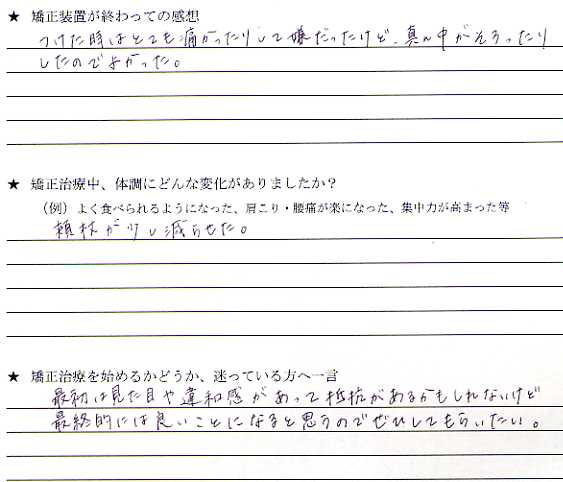 ★ 矯正装置が終わっての感想
つけた時はとても痛かったりして嫌だったけど、真ん中がそろったり
したのでよかった。
★ 矯正治療中、体調にどんな変化がありましたか？
（例）よく食べられるようになった、肩こり・腰痛が楽になった、集中力が高まった等
頬杖が少し減らせた。
★ 矯正治療を始めるかどうか、迷っている方へ一言
最初は見た目や違和感があって抵抗があるかもしれないけど
最終的には良いことになると思うのでぜひしてもらいたい。